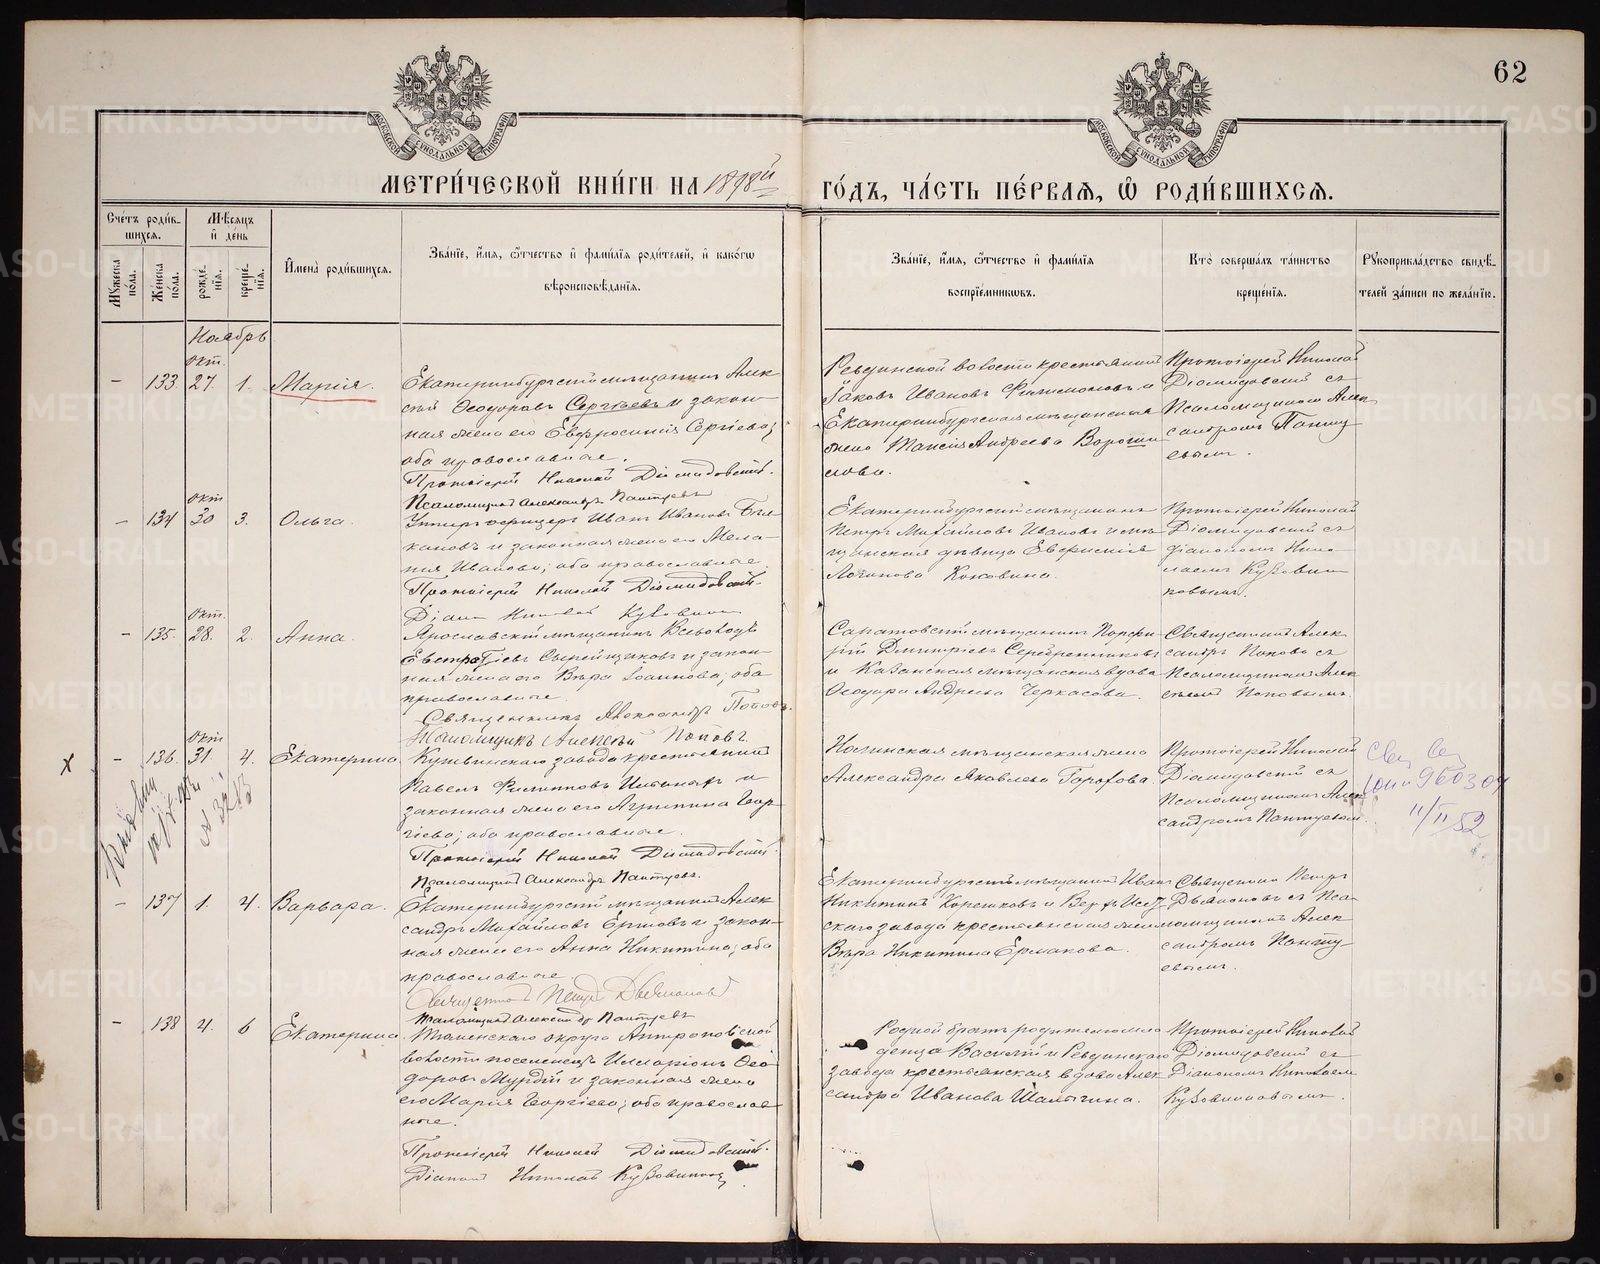 62
МЕТРИ́ЧЕСКОЙ КНИ́ГИ НА 1898й ГО́ДЪ, ЧА́СТЬ ПЕ́РВАѦ, Ѿ РОДИ́ВШИХСѦ.
Сче́тъ роди́вшихсѧ.
Мꙋ́жеска по́ла.
Же́нска по́ла.
Мѣ́сѧцъ и҆ де́нь
рожде́нїѧ.
креще́нїѧ.
И҆мена̀ роди́вшихсѧ.
Зва́нїе, и҆́мѧ, ѻ҆́тчество и҆ фами́лїѧ роди́телей, и҆ како́гѡ
вѣроисповѣ́данїѧ.
Зва́нїе, и҆́мѧ, ѻ҆́тчество и҆ фами́лїѧ
воспрїе́мникѡвъ.
Кто̀ соверша́лъ та́инство
креще́нїѧ.
Рꙋкоприкла́дство свидѣ́телей за́писи по жела́нїю.
Ноябрь
окт.
– 133. 27. 1. Марія.
Екатеринбургскій мѣщанинъ Алек
сѣй Ѳеодоровъ Сергѣевъ и закон-
ная жена его Евфросинія Сергіева;
оба православные.
Протоіерей Николай Діомидовскій.
Псаломщикъ Александръ Пантуевъ
Ревдинской волости крестьянинъ
Іаковъ Ивановъ Филимоновъ и
Екатеринбургская мѣщанская
жена Таисія Андреева Вороши
лова.
Протоіерей Николай
Діомидовскій съ
Псаломщикомъ Алек
сандромъ Панту
евымъ.
окт
– 134 30 3. Ольга.
Унтеръ офицеръ Иванъ Ивановъ
и законная жена его Мела-
нія Иванова; оба православные.
Протоіерей Николай Діомидовскій.
Діаконъ Николай Кузовников
Екатеринбургскій мѣщанинъ
Петръ Михайловъ Ивановъ и мѣ-
щанская дѣвица
Логинова Коковина.
Протоіерей Николай
Діомидовскій съ
діакономъ Нико-
лаемъ Кузовни
ковымъ.
Окт.
– 135. 28. 2. Анна.
Ярославскій мѣщанинъ Всеволодъ
Евстратіевъ Сырейщиковъ и закон-
ная жена его Вѣра Іоаннова; оба
православные
Священникъ Александръ Поповъ.
Псаломщикъ Алексѣй Поповъ.
Саратовскій мѣщанинъ Порфи-
рій Дмитріевъ Серебренниковъ
и Казанская мѣщанская вдова
Ѳеодора Андреева Черкасова.
Священникъ Алек
сандръ Поповъ съ
Псаломщикомъ Алек
сѣемъ Поповымъ.
окт
х – 136. 31. 4. Екатерина.
Кушвинскаго завода крестьянинъ
Павелъ Филипповъ и
законная жена его Агрипина Геор-
гіева; оба православные.
Протоіерей Николай Діомидовскій.
Псаломщикъ Александръ Пантуевъ.
мѣщанская жена
Александра Яковлева Горохова.
Протоіерей Николай
Діомидовскій съ
Псаломщикомъ Алек
сандромъ Пантуевымъ.
960304
11/II 52
– 137 1. 4. Варвара.
Екатеринбургскій мѣщанинъ Алек
сандръ Михайловъ Ершовъ и закон-
ная жена его Анна Никитина; оба
православные.
Священникъ Петръ Двеконовъ
Псаломщикъ Александръ Пантуевъ
Екатеринбургскій мѣщанинъ Иванъ
Никитинъ и Верхъ Исет-
скаго завода крестьянская жена
Вѣра Никитина Ермакова.
Священникъ Петръ
съ Пса-
ломщикомъ Алек
сандромъ Панту-
евымъ.
– 138 4. 6 Екатерина
Тюменскаго округа Антроповской
волости поселенецъ Илларіонъ Ѳео-
доровъ и законная жена
его Марія Георгіева; оба православ
ные.
Протоіерей Николай Діомидовскій.
Діаконъ Николай Кузовников
Родной братъ родителю мла
денца Василій и Ревдинскаго
завода крестьянская вдова Алек
сандра Иванова Шалыгина.
Протоіерей Николай
Діомидовскій съ
Діакономъ Николаем
Кузовниковымъ.
METRIKI.GASO-URAL.RU